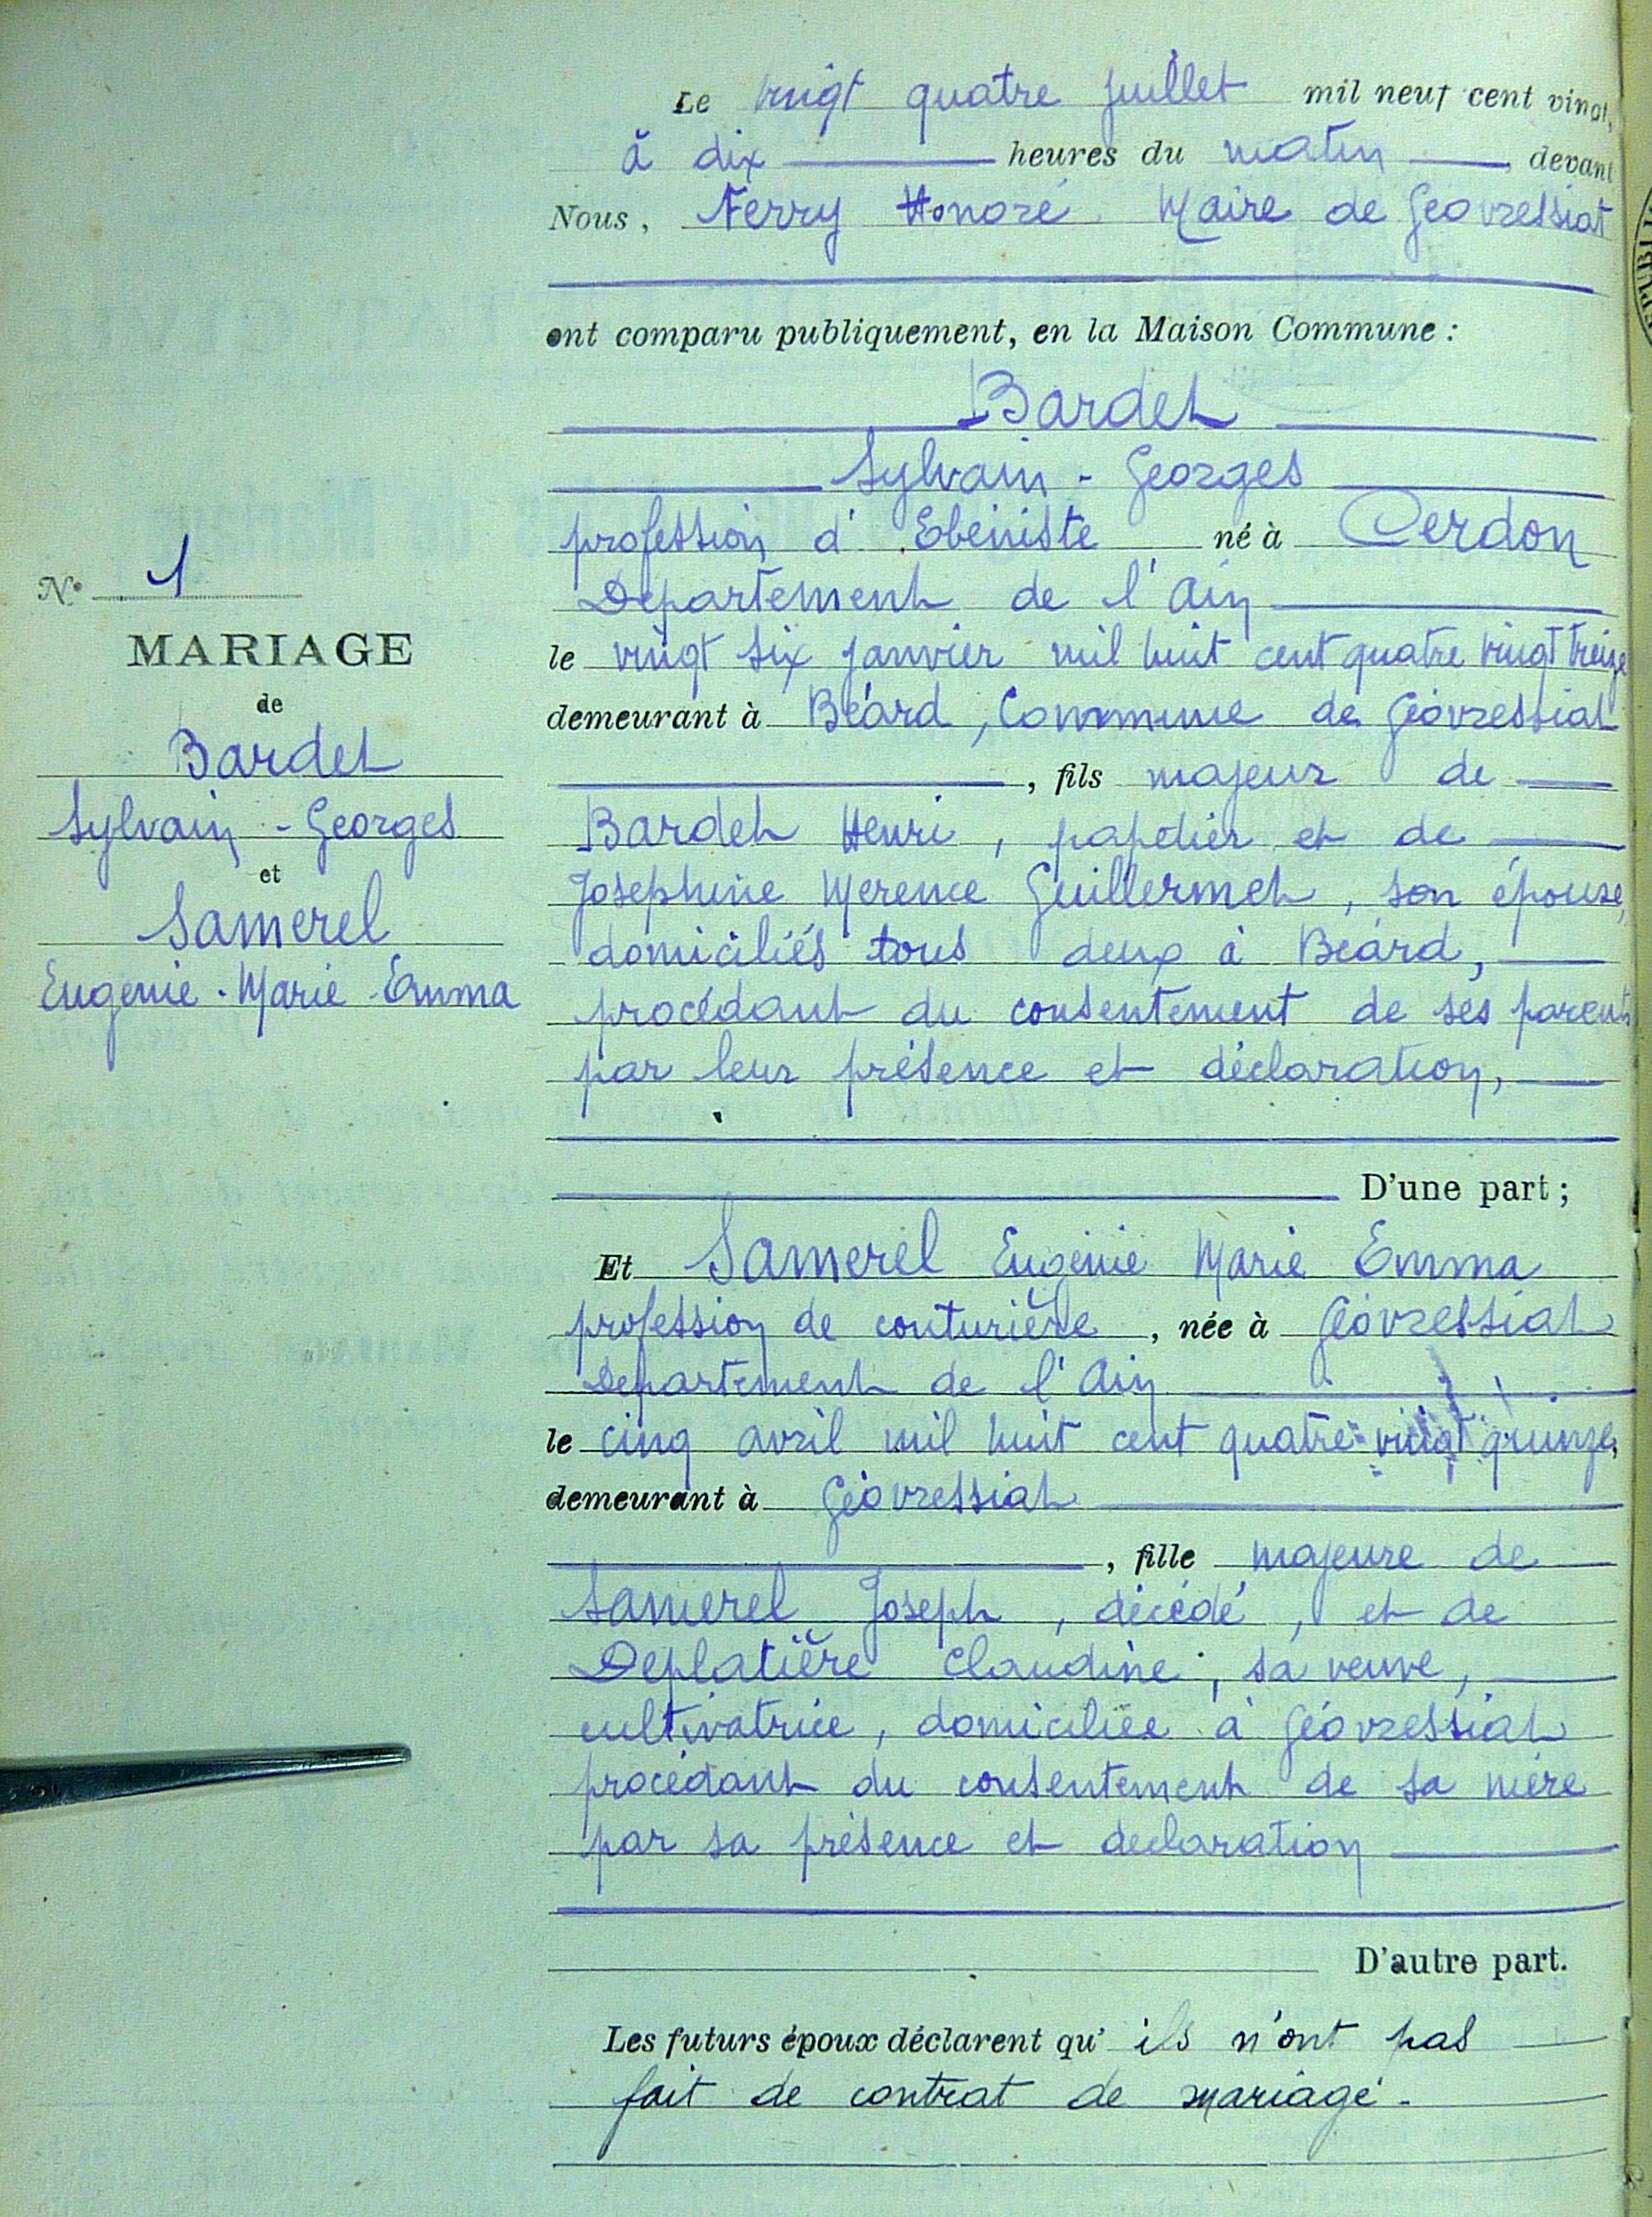 Le vingt quatre juillet mil neuf cent vingt,
à dix heures du matin, devant
Nous, Ferry Honoré Maire de Géovressiat
ont comparu publiquement, en la Maison Commune :
Bardet
Sylvain - Georges
profession d'Ebéniste né à Cerdon
Département de l'Ain
le vingt six janvier mil huit cent quatre vingt treize
demeurant à Béard, Commune de Géovressiat
, fils majeur de
Bardet Henri, papetier et de
Josephine Guillermet, son épouse,
domiciliés tous deux à Béard,
procédant du consentement de ses parents
par leur présence et déclaration,
D'une part ;
Et Samerel Eugénie Marie Emma
profession de couturière, née à Géovressiat
Departement de l'Ain
le cinq avril mil huit cent quatre-vingt quinze,
demeurant à Géovressiat
, fille majeure de
Samerel Joseph, décédé, et de
Deplatière Claudine, sa veuve,
cultivatrice, domiciliée à Géovressiat
procédant du consentement de sa mère
par sa présence et declaration
D'autre part.
Les futurs époux déclarent qu'ils n'ont pas
fait de contrat de mariage.
N° 1
MARIAGE
de
Bardet
Sylvain - Georges
et
Samerel
Eugenie - Marie - Emma